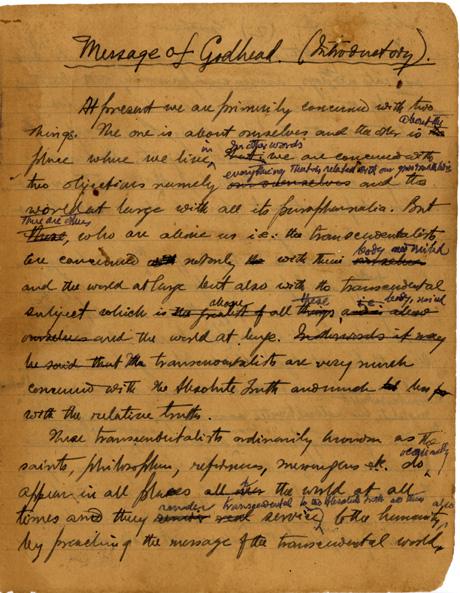 Message of Godhead. (Introductory).
At present we are primarily concerned with two
things. The one is about ourselves and the other is about the
place where we live, in other words we are concerned with
two objectives namely everything that is related with our gross and
and the
world at large with all its paraphernalia. But
there are others, who are above us i.e: the transcendentalists
are concerned not only with their body and mind
and the world at large but also with the transcendental
subject which is above all these things i.e. body, mind
and the world at large. In other words it may
be said that the transcendentalists are very much
concerned with the Absolute Truth and much less for
with the relative truths.
These transcendentalists ordinarily known as the
saints, philosophers, reformers, messengers etc. do occasionally
appear in all places all the world at all
times and they render transcendental service to the humanity also
by preaching the message of the transcendental world,